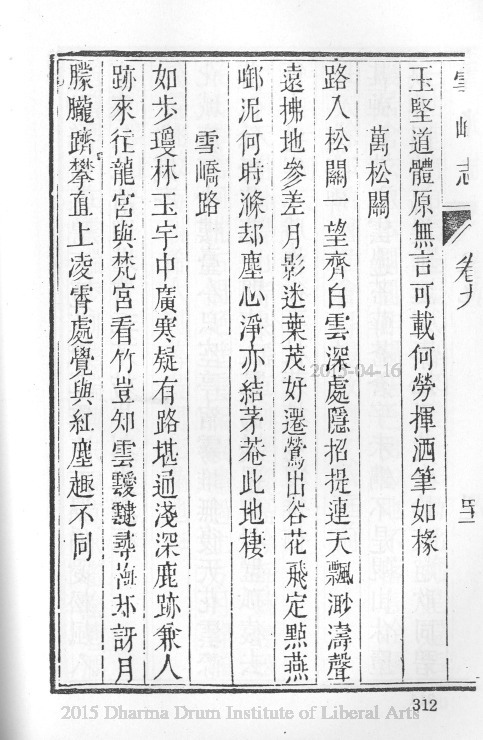 雪嶠志 卷九
玉堅道體原無言可載何勞揮洒筆如椽
萬松關
路入松關一望齊白雲深處隱招提連天飄渺濤聲
遠拂地參差月影迷葉茂好遷鶯出谷花飛定點燕
啣泥何時滌却塵心淨亦結茅菴此地棲
雪嶠路
如步瓊林玉宇中廣寒疑有路堪通淺深鹿跡兼人
跡來往龍宮與梵宮看竹豈知雲靉靆尋梅却訝月
朦朧躋攀直上凌霄處覺與紅塵趣不同
312
2015-04-16
2015 Dharma Drum Institute of Liberal Arts